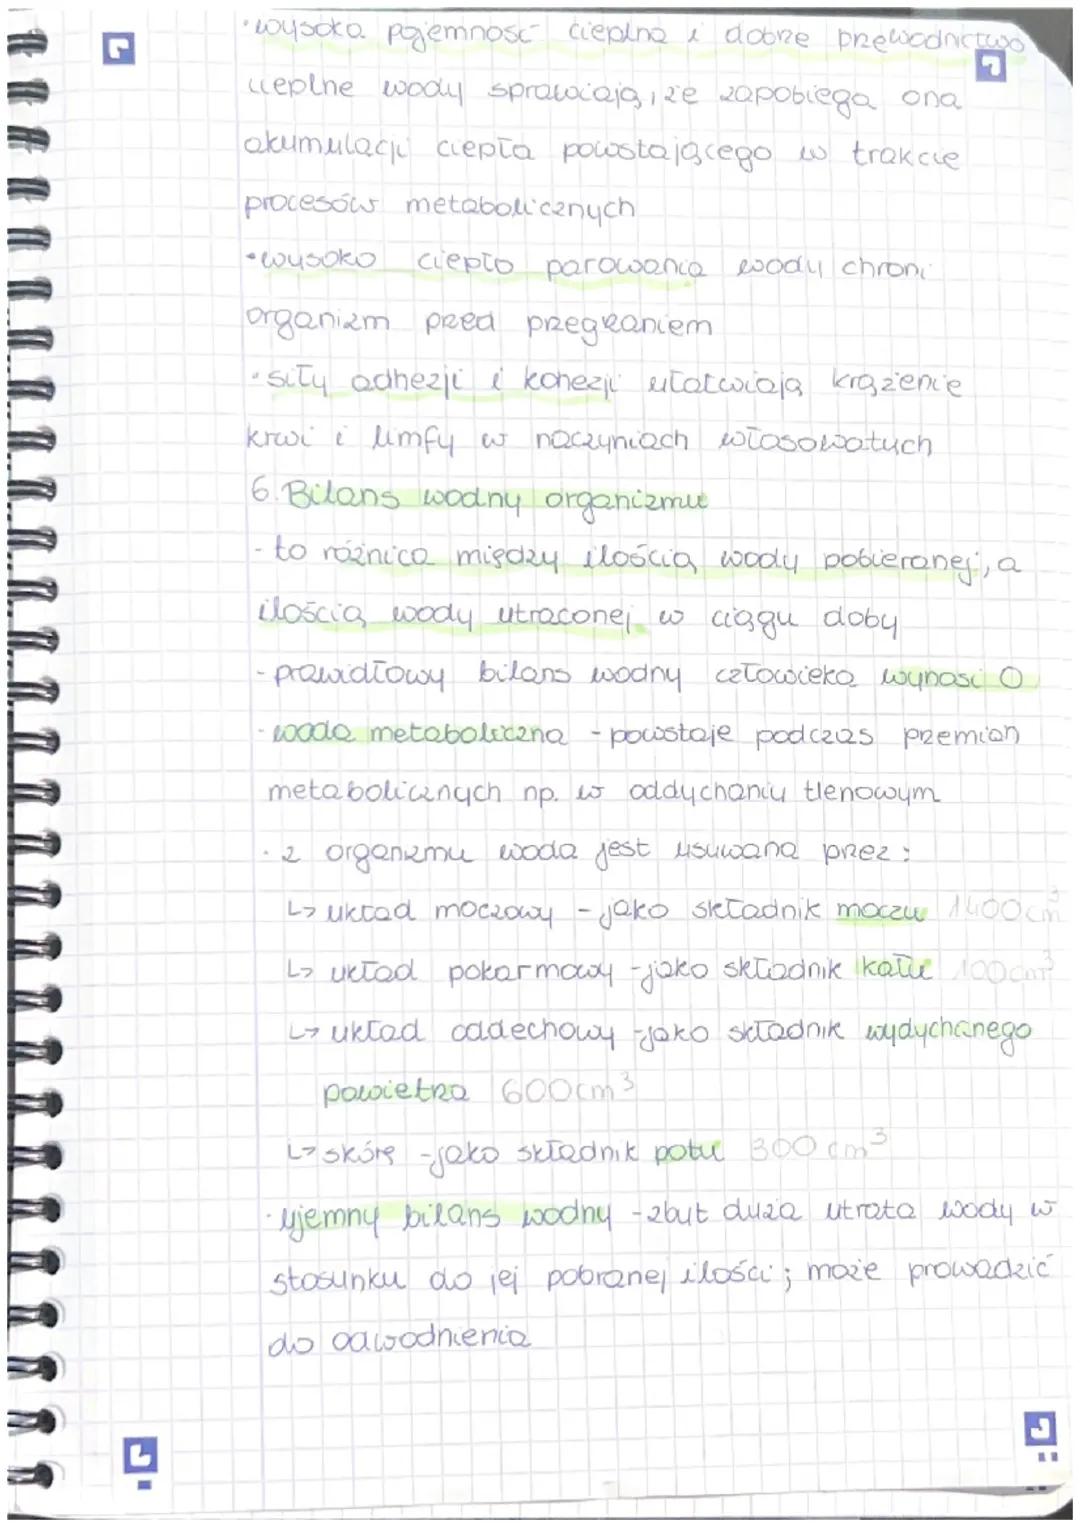 •wysoka pojemność cieplna i dobre przewodnictwo
cieplne wody sprawiają, że zapobiega ona
akumulacji ciepła powstającego w trakcie
procesów metabolicznych
•wysoko ciepło parowania wody chroni
organizm przed przegrzaniem
•siły adhezji i kohezji ułatwiają krążenie
krwi i limfy w naczyniach włosowatych
6. Bilans wodny organizmu
- to różnica między ilością wody pobieranej, a
ilością wody utraconej w ciągu doby
- prawidłowy bilans wodny człowieka wynosi 0
- woda metaboliczna - powstaje podczas przemian
metabolicznych np. w oddychaniu tlenowym
• z organizmu woda jest usuwana przez:
↳ układ moczowy - jako składnik moczu 1400 cm³
↳ układ pokarmowy - jako składnik kału 100 cm³
↳ układ oddechowy - jako składnik wydychanego
powietrza 600 cm³
↳ skórę - jako składnik potu 300 cm³
• ujemny bilans wodny - zbyt duża utrata wody w
stosunku do jej pobranej ilości; może prowadzić
do odwodnienia